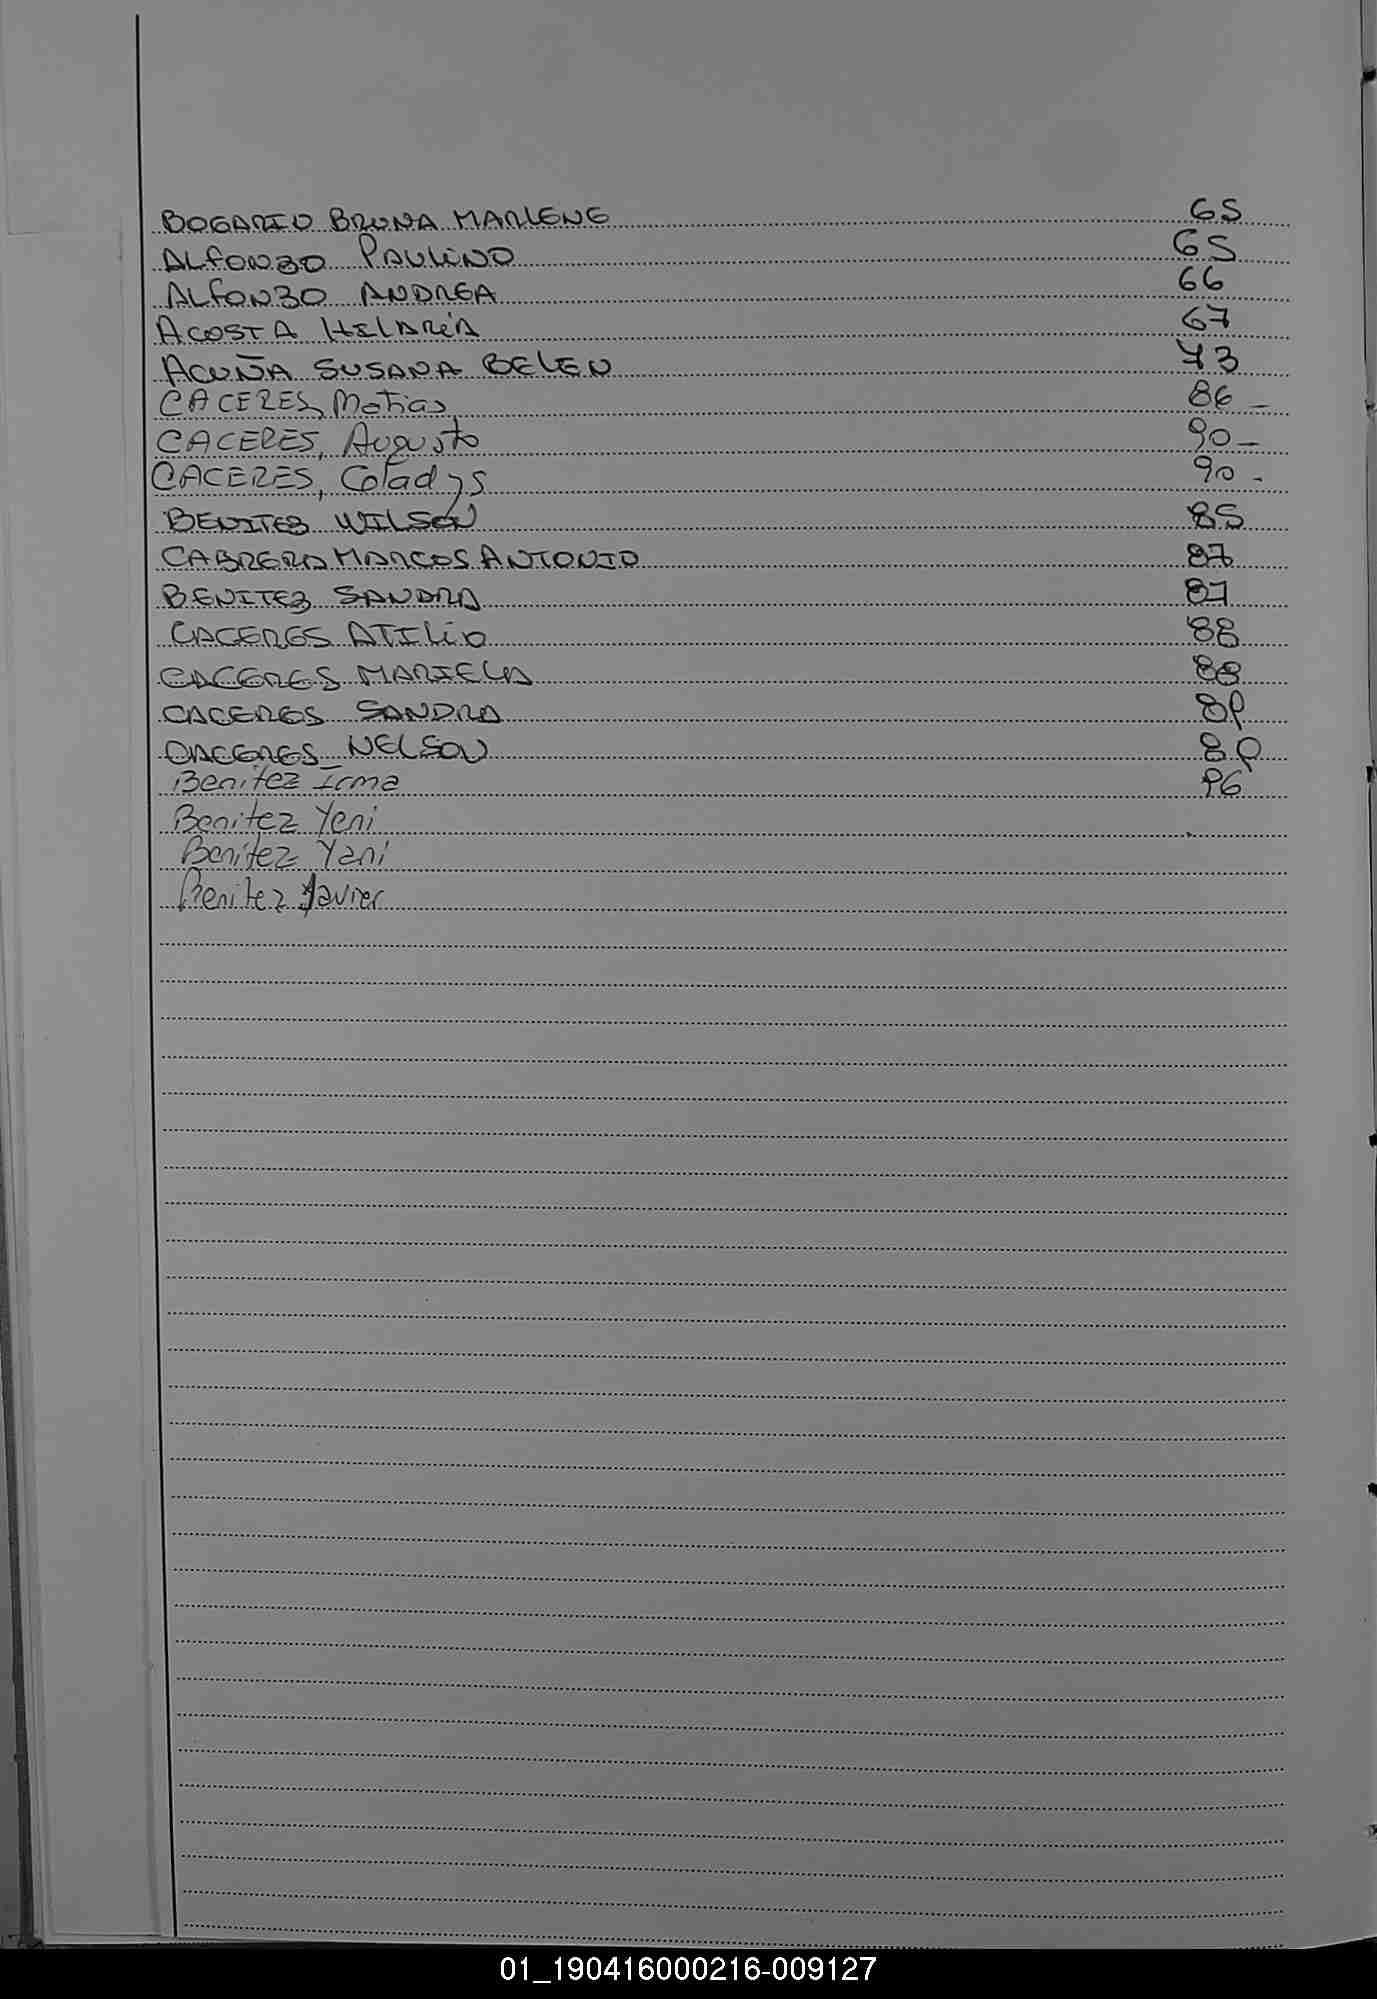 BOGARIO BRUNA MARLENE 65
ALFONZO PAULINO 65
ALFONZO ANDREA 66
ACOSTA HILARIA 67
ACUÑA SUSANA BELEN 73
CACERES, Matias 86 -
CACERES, Augusto 90 -
CACERES, Gladys 90 -
BENITEZ WILSON 85
CABRERA MARCOS ANTONIO 87
BENITEZ SANDRA 87
CACERES ATILIO 88
CACERES MARIELA 88
CACERES SANDRA 89
CACERES NELSON 89
Benitez Irma 96
Benitez Yeni
Benitez Yani
Benitez Javier
01_190416000216-009127